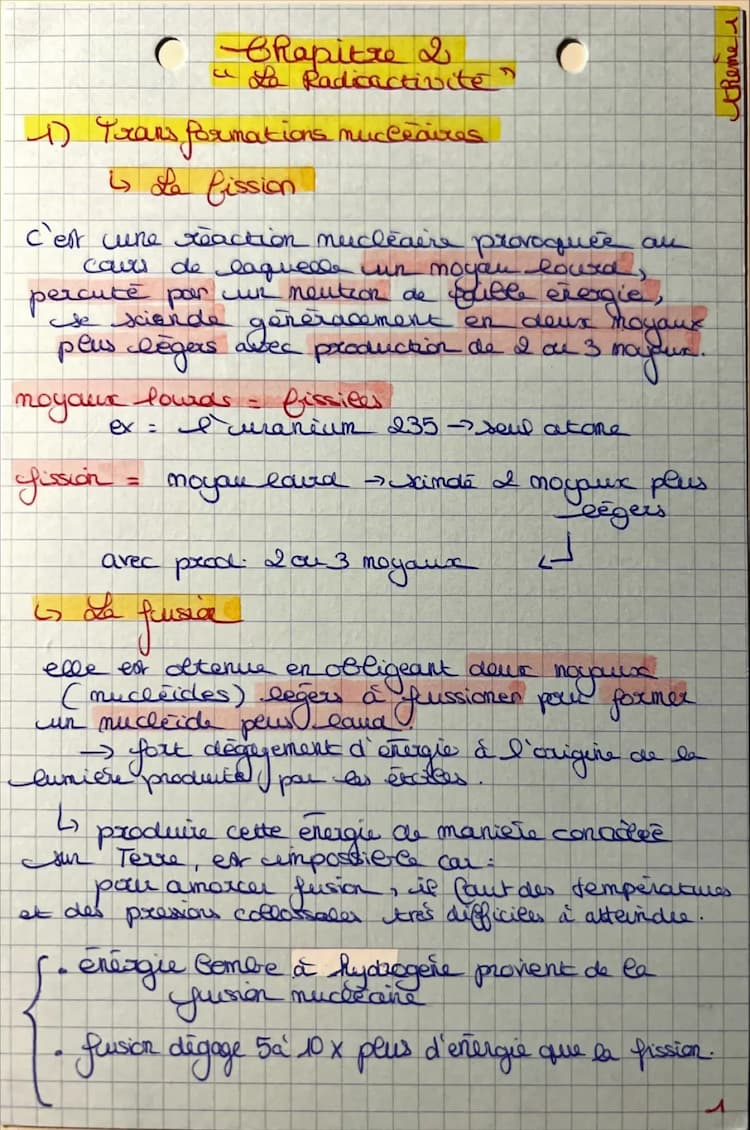 Thème 1
Chapitre 2
"La Radioactivité"
1) Transformations nucléaires
↳ La fission
C'est une réaction nucléaire provoquée au
cours de laquelle un noyau lourd,
percuté par un neutron de faible énergie,
se scinde généralement en deux noyaux
plus légers avec production de 2 ou 3 noyaux.
noyaux lourds = fissiles
ex = l'uranium 235 → seul atome
fission = noyau lourd → scindé 2 noyaux plus
légers
avec prod. 2 ou 3 noyaux ↲
↳ La fusion
elle est obtenue en obligeant deux noyaux
(nucléides) légers à fussionner pour former
un nucléide plus lourd.
→ fort dégagement d'énergie à l'origine de la
lumière produite par les étoiles.
↳ produire cette énergie de manière contrôlée
sur Terre, est impossible car :
pour amorcer fusion, il faut des températures
et des pressions collossales très difficiles à atteindre.
• énergie bombe à hydrogène provient de la
fusion nucléaire
• fusion dégage 5 à 10 x plus d'énergie que la fission.
1